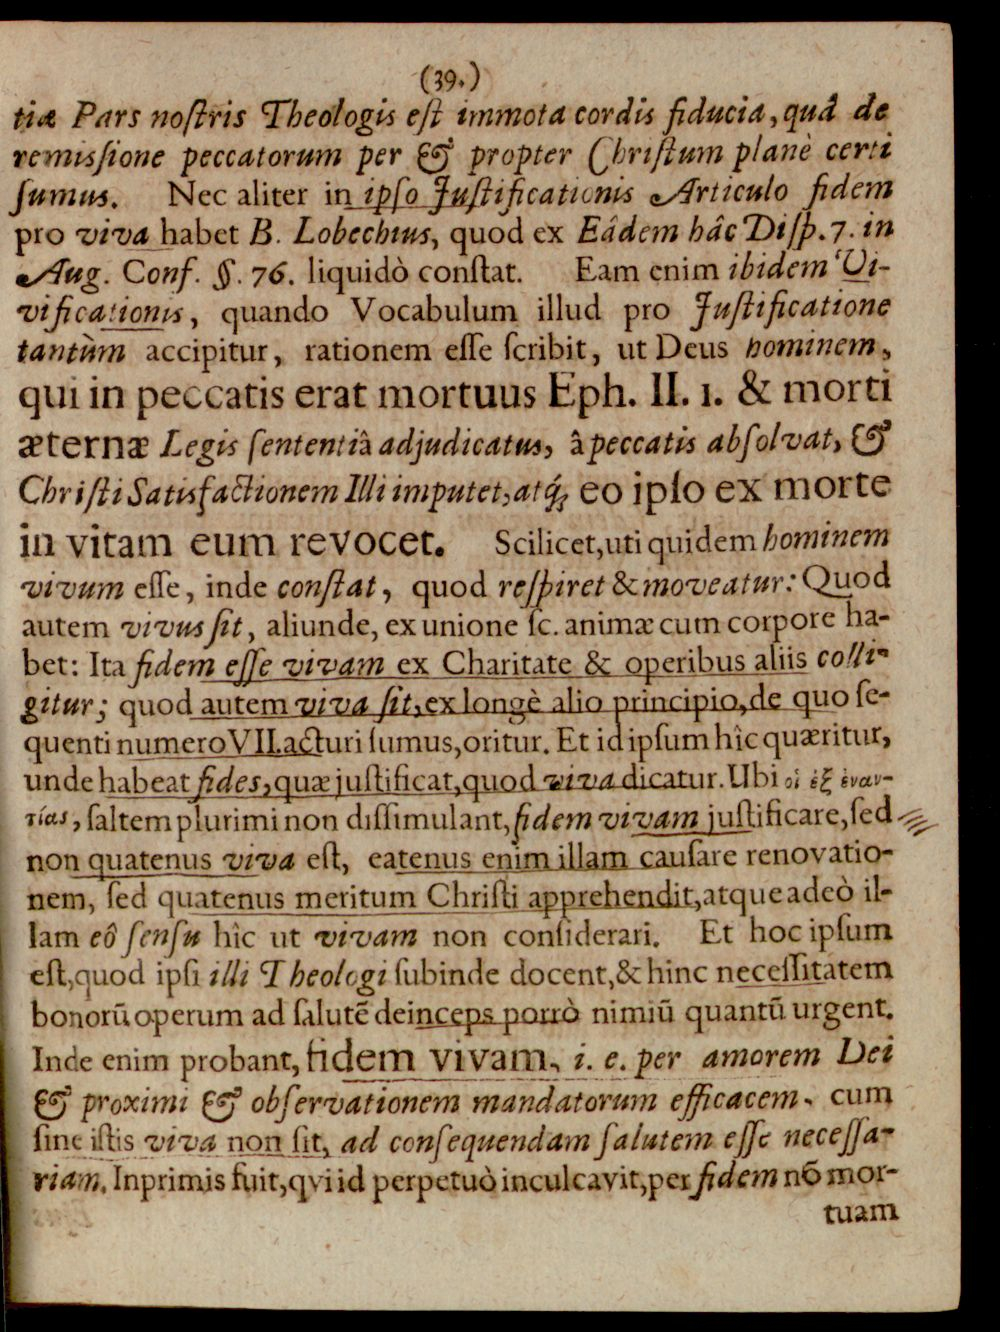 (39.)
tiæ Pars noſtris Theologis eſt immota cordis fiducia, quâ de
remiſsione peccatorum per & propter Chriſtum planè certi
ſumus. Nec aliter in ipſo Juſtificationis Articulo fidem
pro viva habet B. Lobechius, quod ex Eâdem hâc Diſp. 7. in
Aug. Conf. §. 76. liquidò conſtat. Eam enim ibidem Vi-
vificationis, quando Vocabulum illud pro Juſtificatione
tantùm accipitur, rationem eſſe ſcribit, ut Deus hominem,
qui in peccatis erat mortuus Eph. II. 1. & morti
æternæ Legis ſententiâ adjudicatus, â peccatis abſolvat, &
Chriſti Satisfactionem Illi imputet, atq́; eo ipſo ex morte
in vitam eum revocet. Scilicet, uti quidem hominem
vivum eſſe, inde conſtat, quod reſpiret & moveatur: Quod
autem vivus ſit, aliunde, ex unione ſc. animæ cum corpore ha-
bet: Ita fidem eſſe vivam ex Charitate & operibus aliis colli-
gitur; quod autem viva ſit, ex longè alio principio, de quo ſe-
quenti numero VII. acturi ſumus, oritur. Et id ipſum hîc quæritur,
unde habeat fides, quæ juſtificat, quod viva dicatur. Ubi οἱ ἐξ ἐναν-
τίας, ſaltem plurimi non diſſimulant, fidem vivam juſtificare, ſed
non quatenus viva eſt, eatenus enim illam cauſare renovatio-
nem, ſed quatenus meritum Chriſti apprehendit, atque adeò il-
lam eô ſenſu hîc ut vivam non conſiderari. Et hoc ipſum
eſt, quod ipſi illi Theologi ſubinde docent, & hinc neceſſitatem
bonorū operum ad ſalutē deinceps porrò nimiū quantū urgent.
Inde enim probant, fidem vivam, i. e. per amorem Dei
& proximi & obſervationem mandatorum efficacem, cum
ſine iſtis viva non ſit, ad conſequendam ſalutem eſſe neceſſa-
riam. Inprimis fuit, qvi id perpetuò inculcavit, per fidem nō mor-
tuam